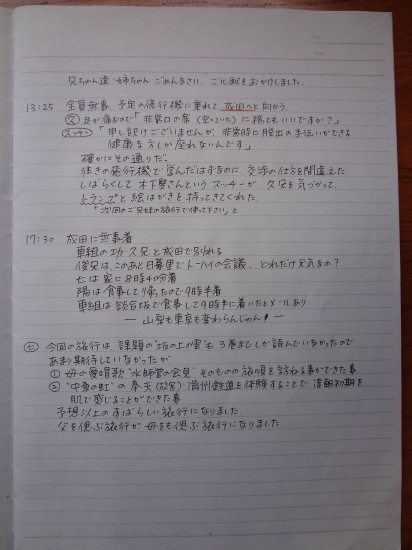 兄ちゃん達 姉ちゃん ごめんなさい。ご心配をおかけしました。
13:25 全員無事 予定の飛行機に乗れて 成田へと向かう
久 足が痛むので「非常口の席(空いていた)に移ってもいいですか?」
スッチー「申し訳ございませんが、非常時に脱出の手伝いができる
健康な方しか座れないんです」
確かにその通りだ。
往きの飛行機で学んだはずなのに、交渉の仕方を間違えた
しばらくして 木下さんという スッチーが 久兄を気づかって、
トランプと絵はがきを持ってきてくれた
「次回のご兄妹の旅行で使って下さい」と
17:30 成田に無事着
車組の功、久兄と成田で別れる
俊兄は、このあと日暮里でトーハイの会議、どれだけ元気なの?
七は家に8時40分着
陽は食事して帰ったので9時半着
車組は談合坂で食事して9時半に着いたとメールあり
― 山梨も東京も変わらんじゃん! ―
七 今回の旅行は 課題の"坂の上の雲"も3巻までしか読んでいなかったので
あまり期待していなかったが
① 母の愛唱歌"水師営の会見"そのものの旅順を訪ねる事ができた事
② "中原の虹"の奉天(故宮)・満州鉄道を体験することで、清朝初期を
肌で感じることができた事
予想以上のすばらしい旅行になりました。
父を偲ぶ旅行が母をも偲ぶ旅行になりました。